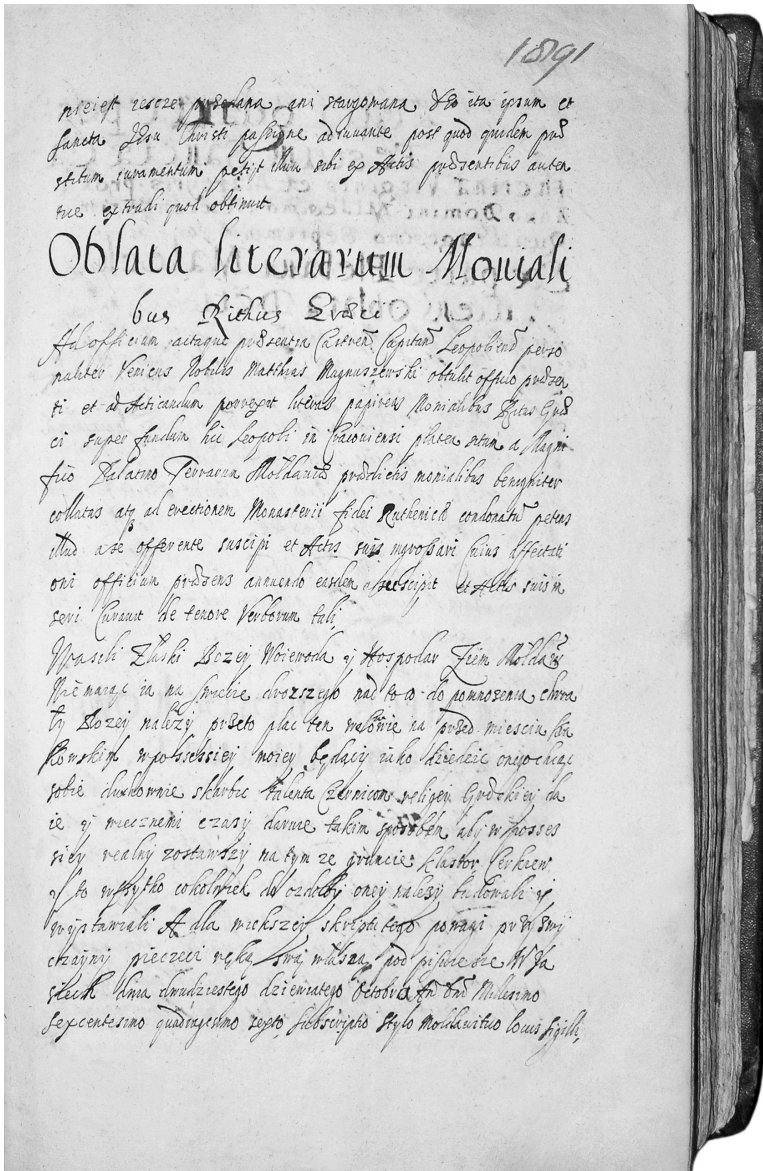 1891
nieiest iescze przedana ani starzowana Sic ita ipsum et
Sancta Jesu Christi passione adiuvante post quod quidem præ
stitum iuramentum petijt illum sibi ex Actis præsentibus auten
tice extradi quod obtinuit
Oblata literarum Moniali
bus Rithus Græci
Ad officium actaque præsentia Castren Capitan Leopolien perso
naliter Veniens Nobilis Matthias Magnuszewski obtulit officio præsen
ti et ad Acticandum porrexit literas papireas Monialibus Ritus Græ
ci super fundum hic Leopoli in Cracoviensi platea situm a Magni
fico Palatino Terrarum Moldaviæ prædictis monialibus benigniter
collatas atq ad erectionem Monasterii fidei Ruthenicæ condonatū petens
illud a se offerente suscipi et Actis suis ingrossari Cuius affectati
oni officium præsens annuendo easdem suscipit et Actis suis in
seri Curavit de tenore Verborum tali
Wasili Z łaski Bozey Woiewoda y Hospodar Ziem Mołdaws
Nie maiąc ia na swiecie drozszego nad to co do pomnozenia chwa
ły Bozey nalezy przeto plac ten we Lwowie na przed miesciu Kra
kowskim w possessiey moiey będący iako dziedzic onego chcąc
sobie duchownie skarbic talenta Czernicom religiey Græckiey da
ie y wiecznemi czasy daruie takim sposobem aby w posses
siey realny zostawszy na tym ze gruncie klastor Cerkiew
y to wszytko cokolwiek do ozdoby oney nalezy budowali y
wystawiali A dla wiekszey skriptu tego powagi przy swy
czayny pieczeci ręką swą właszną pod pisuie sie W Ja
siech dnia dwudziestego dziewiatego Octobris An Dni Millesimo
sexcentesimo quadragesimo sexto Subscriptio stylo Moldavitico locus sigilli,